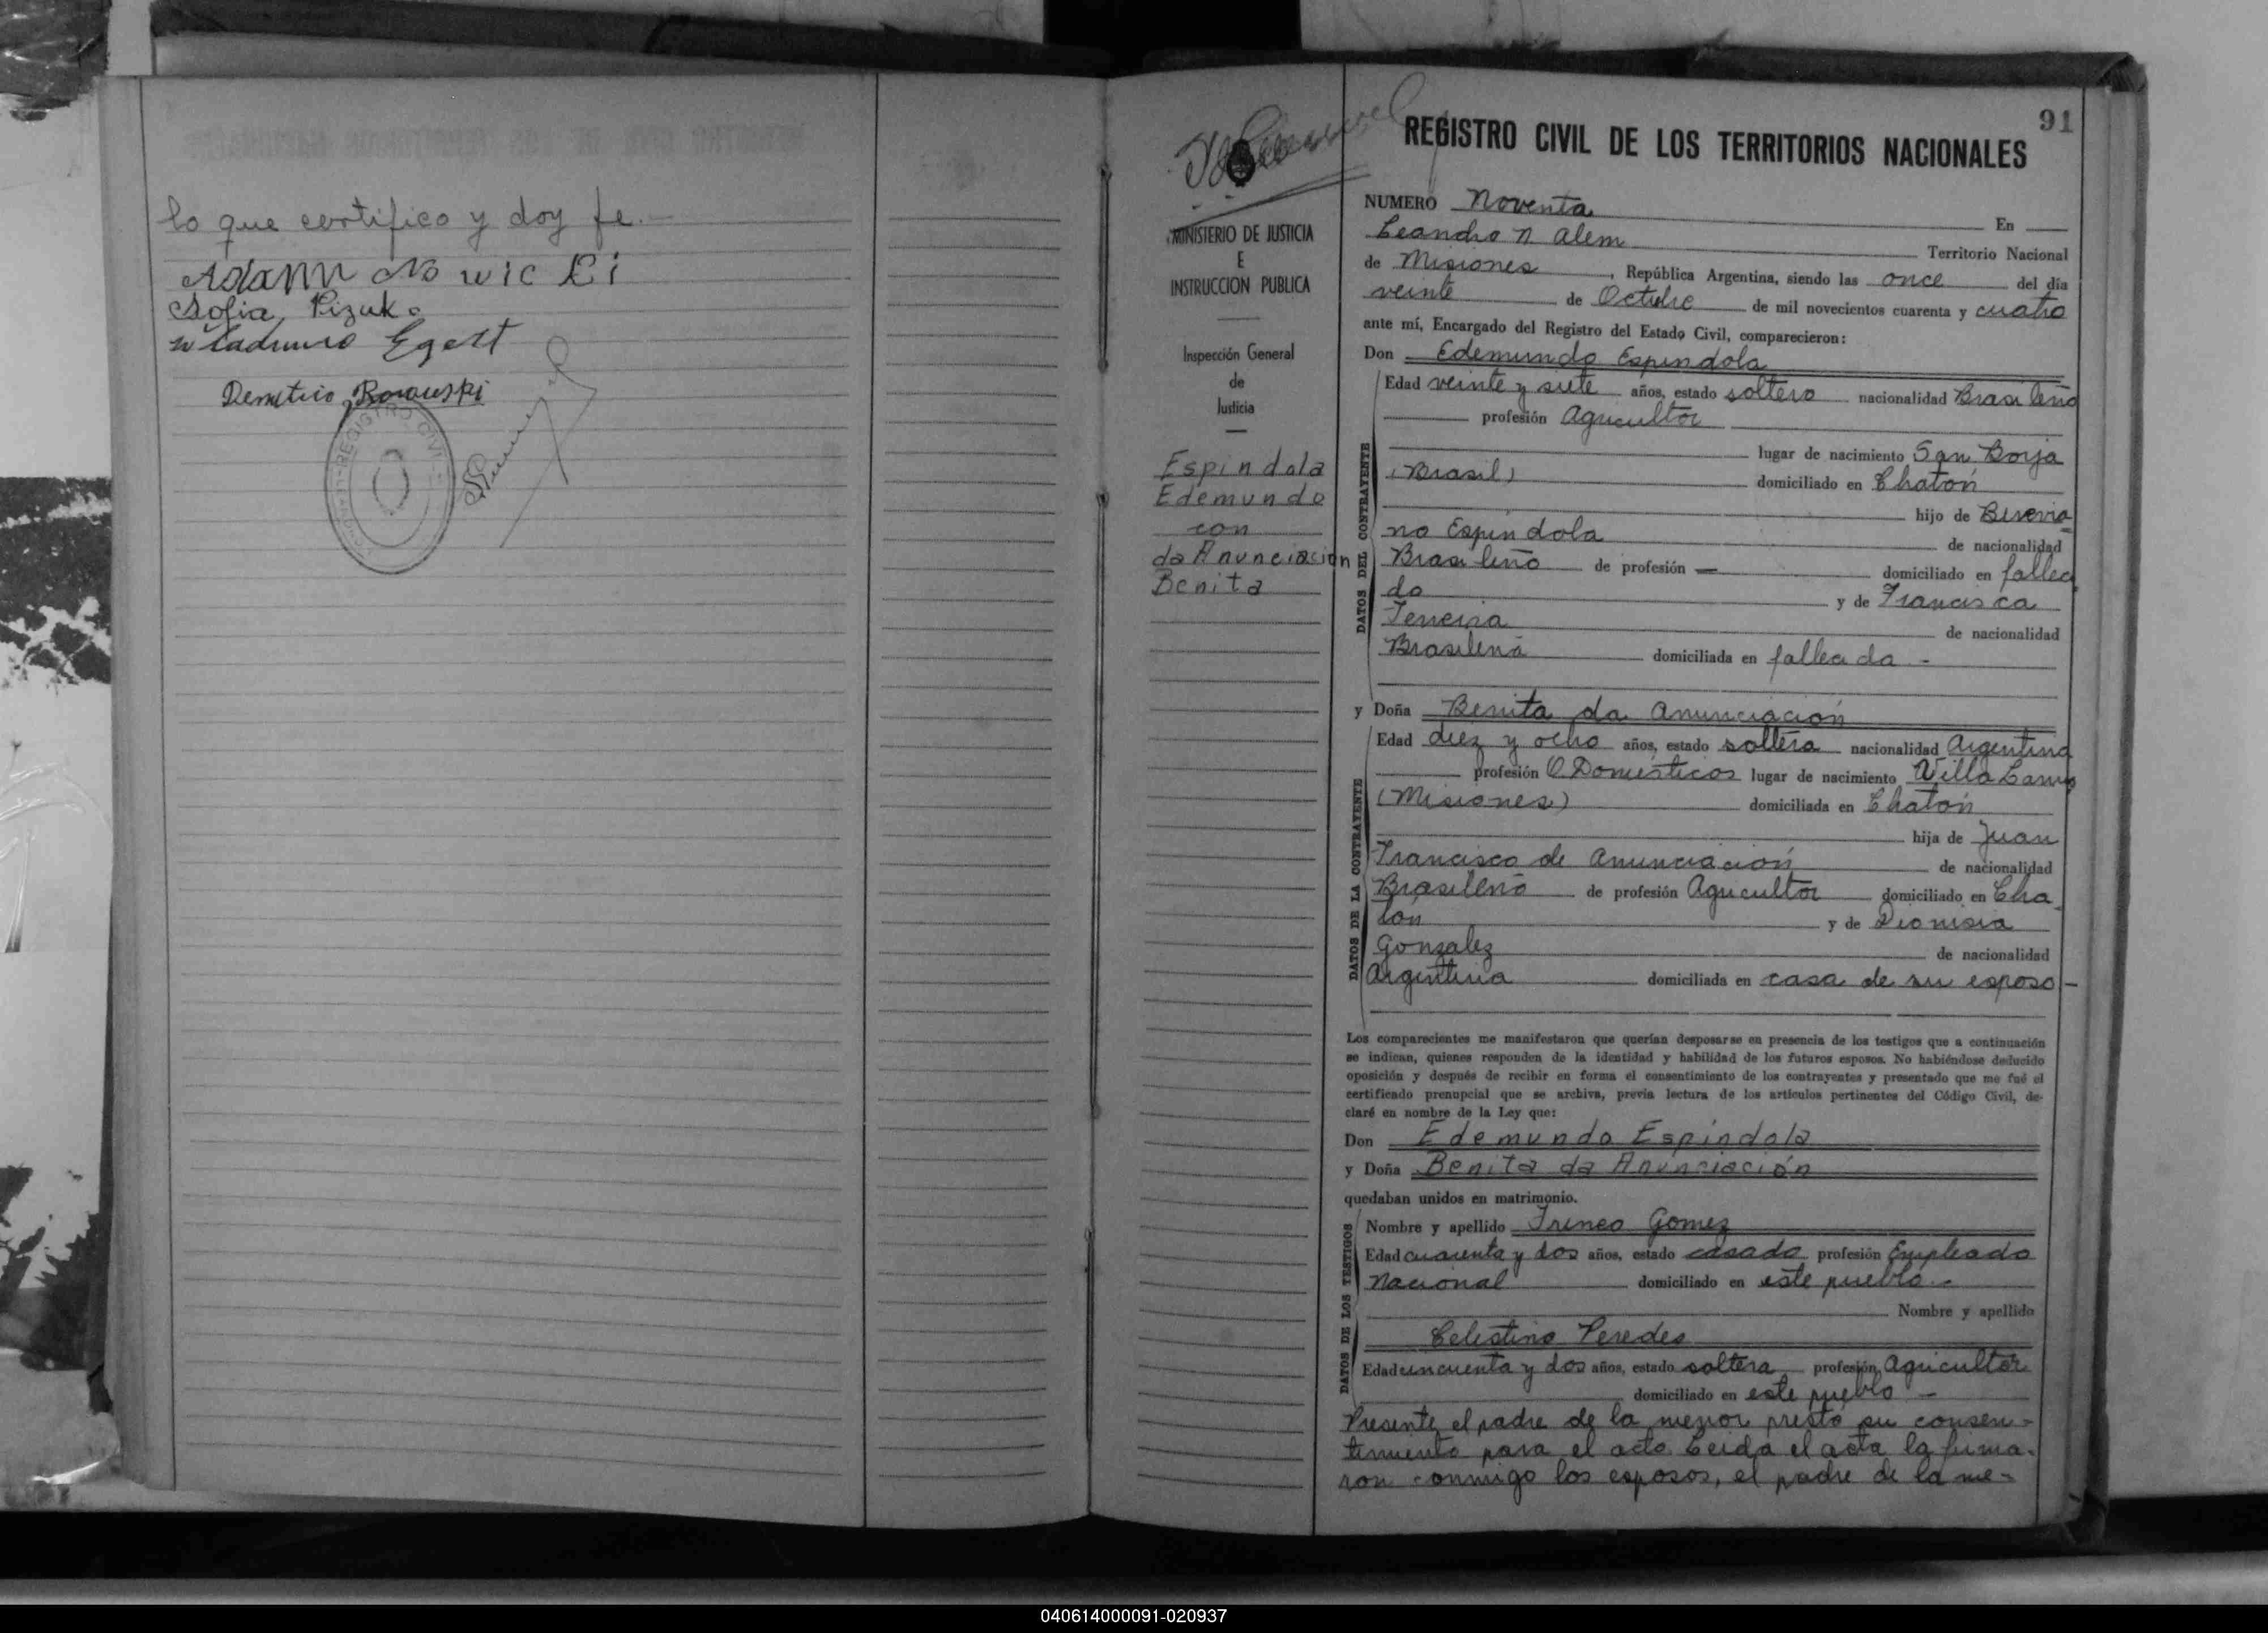 lo que certifico y doy fe.
Adam Nowicki
Sofia Pizuk
Wladimiro Egert
Demetrio
REGISTRO CIVIL
91
REGISTRO CIVIL DE LOS TERRITORIOS NACIONALES
MINISTERIO DE JUSTICIA
E
INSTRUCCION PUBLICA
Inspección General
de
Justicia
Espindola
Edemundo
con
da Anunciacion
Benita
NUMERO Noventa En
Leandro N Alem Territorio Nacional
de Misiones, República Argentina, siendo las once del día
veinte de Octubre de mil novecientos cuarenta y cuatro
ante mí, Encargado del Registro del Estado Civil, comparecieron:
Don Edemundo Espindola
DATOS DEL CONTRAYENTE
Edad veinte y siete años, estado soltero nacionalidad Brasileño
profesión Agricultor
lugar de nacimiento San Borja
(Brasil) domiciliado en Chatón
hijo de
no Espindola de nacionalidad
Brasileño de profesión — domiciliado en falleci
do y de Francisca
Terreira de nacionalidad
Brasilena domiciliada en fallecida -
y Doña Benita da Anunciación
DATOS DE LA CONTRAYENTE
Edad diez y ocho años, estado soltera nacionalidad Argentina
profesión Q Domésticos lugar de nacimiento Villa
(Misiones) domiciliada en Chatón
hija de Juan
Francisco de Anunciación de nacionalidad
Brasileño de profesión Agricultor domiciliado en Cha
tón y de Dionisia
Gonzalez de nacionalidad
Argentina domiciliada en casa de su esposo -
Los comparecientes me manifestaron que querían desposarse en presencia de los testigos que a continuación
se indican, quienes responden de la identidad y habilidad de los futuros esposos. No habiéndose deducido
oposición y después de recibir en forma el consentimiento de los contrayentes y presentado que me fué el
certificado prenupcial que se archiva, previa lectura de los artículos pertinentes del Código Civil, de-
claré en nombre de la Ley que:
Don Edemundo Espindola
y Doña Benita da Anunciación
quedaban unidos en matrimonio.
DATOS DE LOS TESTIGOS
Nombre y apellido Irineo Gomez
Edad cuarenta y dos años, estado casado profesión Empleado
Nacional domiciliado en este pueblo -
Nombre y apellido
Celestino Peredes
Edad cincuenta y dos años, estado soltera profesión Agricultor
domiciliado en este pueblo -
Presente el padre de la menor prestó su consen-
timiento para el acto Leida el acta la firma-
ron conmigo los esposos, el padre de la me-
040614000091-020937